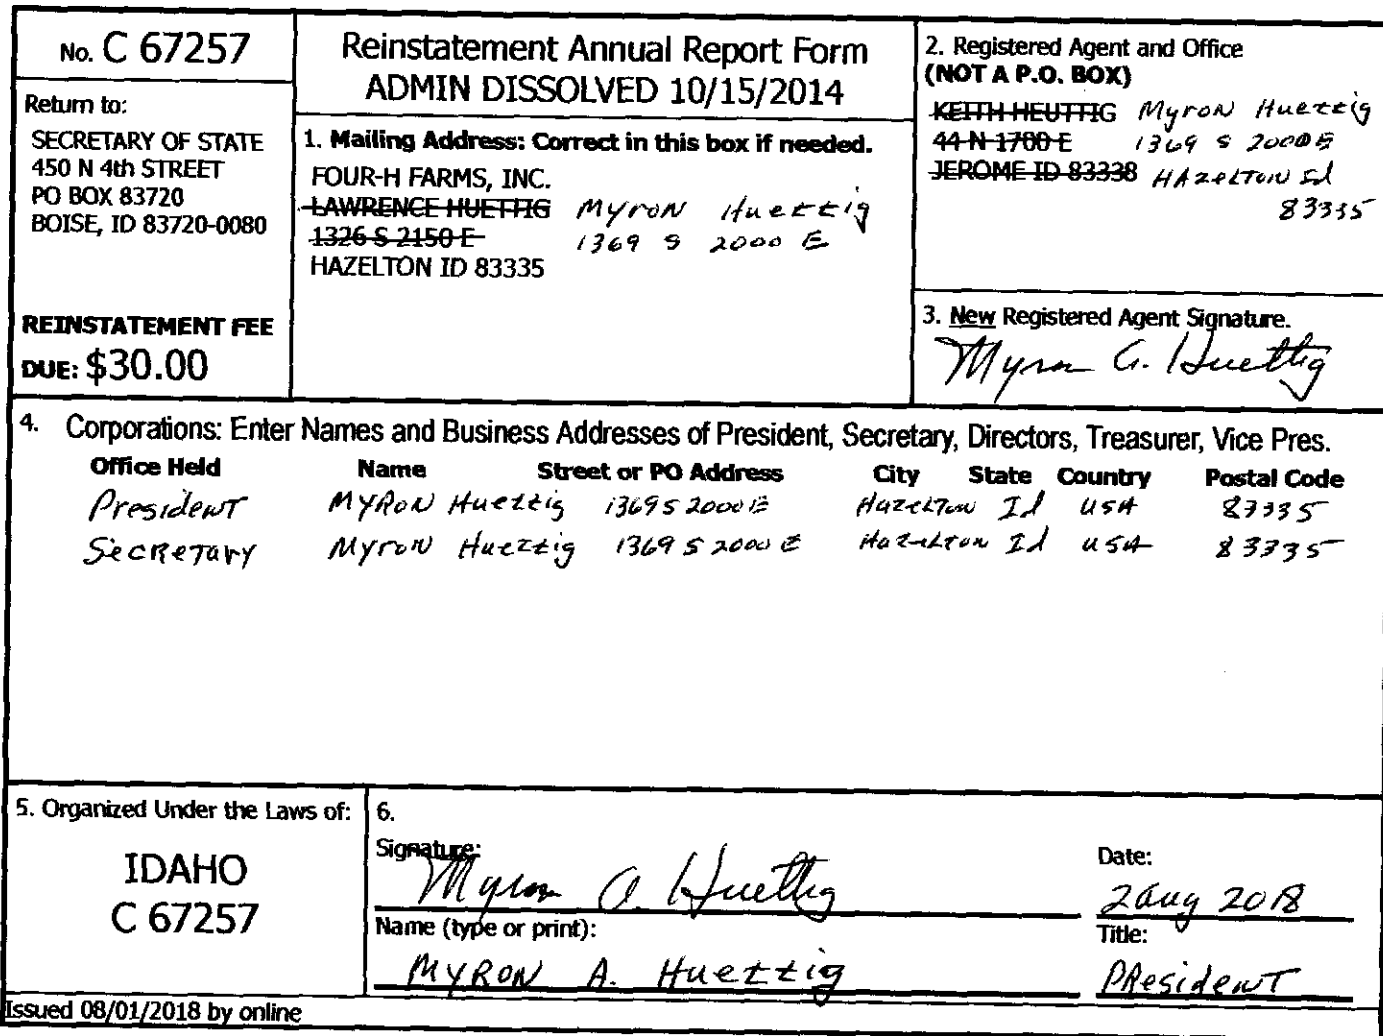 No. C 67257
Return to:
SECRETARY OF STATE
450 N 4th STREET
PO BOX 83720
BOISE, ID 83720-0080
REINSTATEMENT FEE
DUE: $30.00
Reinstatement Annual Report Form
ADMIN DISSOLVED 10/15/2014
1. Mailing Address: Correct in this box if needed.
FOUR-H FARMS, INC.
LAWRENCE HUETTIG Myron Huettig
1326 S 2150 E 1369 S 2000 E
HAZELTON ID 83335
2. Registered Agent and Office
(NOT A P.O. BOX)
KEITH HEUTTIG Myron Huettig
44 N 1700 E 1369 S 2000 E
JEROME ID 83338 HAzelton Id
83335
3. New Registered Agent Signature.
Myron A. Huettig
4. Corporations: Enter Names and Business Addresses of President, Secretary, Directors, Treasurer, Vice Pres.
Office Held Name Street or PO Address City State Country Postal Code
President Myron Huettig 1369 S 2000 E Hazelton Id USA 83335
Secretary Myron Huettig 1369 S 2000 E Hazelton Id USA 83335
5. Organized Under the Laws of:
IDAHO
C 67257
6.
Signature: Myron A. Huettig
Date: 2 Aug 2018
Name (type or print): MYRON A. Huettig
Title: President
Issued 08/01/2018 by online